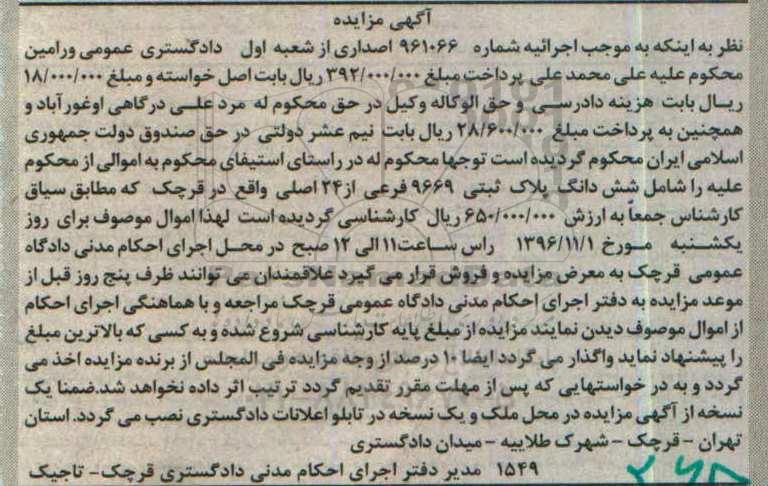 آگهی مزایده
نظر به اینکه به موجب اجرائیه شماره ۹۶۱۰۶۶ اصداری از شعبه اول دادگستری عمومی ورامین
محکوم علیه علی محمد علی پرداخت مبلغ ۳۹۲/۰۰۰/۰۰۰ ریال بابت اصل خواسته و مبلغ ۱۸/۰۰۰/۰۰۰
ریال بابت هزینه دادرسی و حق الوکاله وکیل در حق محکوم له مرد علی درگاهی اوغورآباد و
همچنین به پرداخت مبلغ ۲۸/۶۰۰/۰۰۰ ریال بابت نیم عشر دولتی در حق صندوق دولت جمهوری
اسلامی ایران محکوم گردیده است توجها محکوم له در راستای استیفای محکوم به اموالی از محکوم
علیه را شامل شش دانگ پلاک ثبتی ۹۶۶۹ فرعی از۲۴ اصلی واقع در قرچک که مطابق سیاق
کارشناس جمعاً به ارزش ۶۵۰/۰۰۰/۰۰۰ ریال کارشناسی گردیده است لهذا اموال موصوف برای روز
یکشنبه مورخ ۱۳۹۶/۱۱/۱ راس ساعت۱۱ الی ۱۲ صبح در محل اجرای احکام مدنی دادگاه
عمومی قرچک به معرض مزایده و فروش قرار می گیرد علاقمندان می توانند ظرف پنج روز قبل از
موعد مزایده به دفتر اجرای احکام مدنی دادگاه عمومی قرچک مراجعه و با هماهنگی اجرای احکام
از اموال موصوف دیدن نمایند مزایده از مبلغ پایه کارشناسی شروع شده و به کسی که بالاترین مبلغ
را پیشنهاد نماید واگذار می گردد ایضا ۱۰ درصد از وجه مزایده فی المجلس از برنده مزایده اخذ می
گردد و به در خواستهایی که پس از مهلت مقرر تقدیم گردد ترتیب اثر داده نخواهد شد.ضمنا یک
نسخه از آگهی مزایده در محل ملک و یک نسخه در تابلو اعلانات دادگستری نصب می گردد. استان
تهران - قرچک - شهرک طلاییه - میدان دادگستری
۱۵۴۹ مدیر دفتر اجرای احکام مدنی دادگستری قرچک- تاجیک